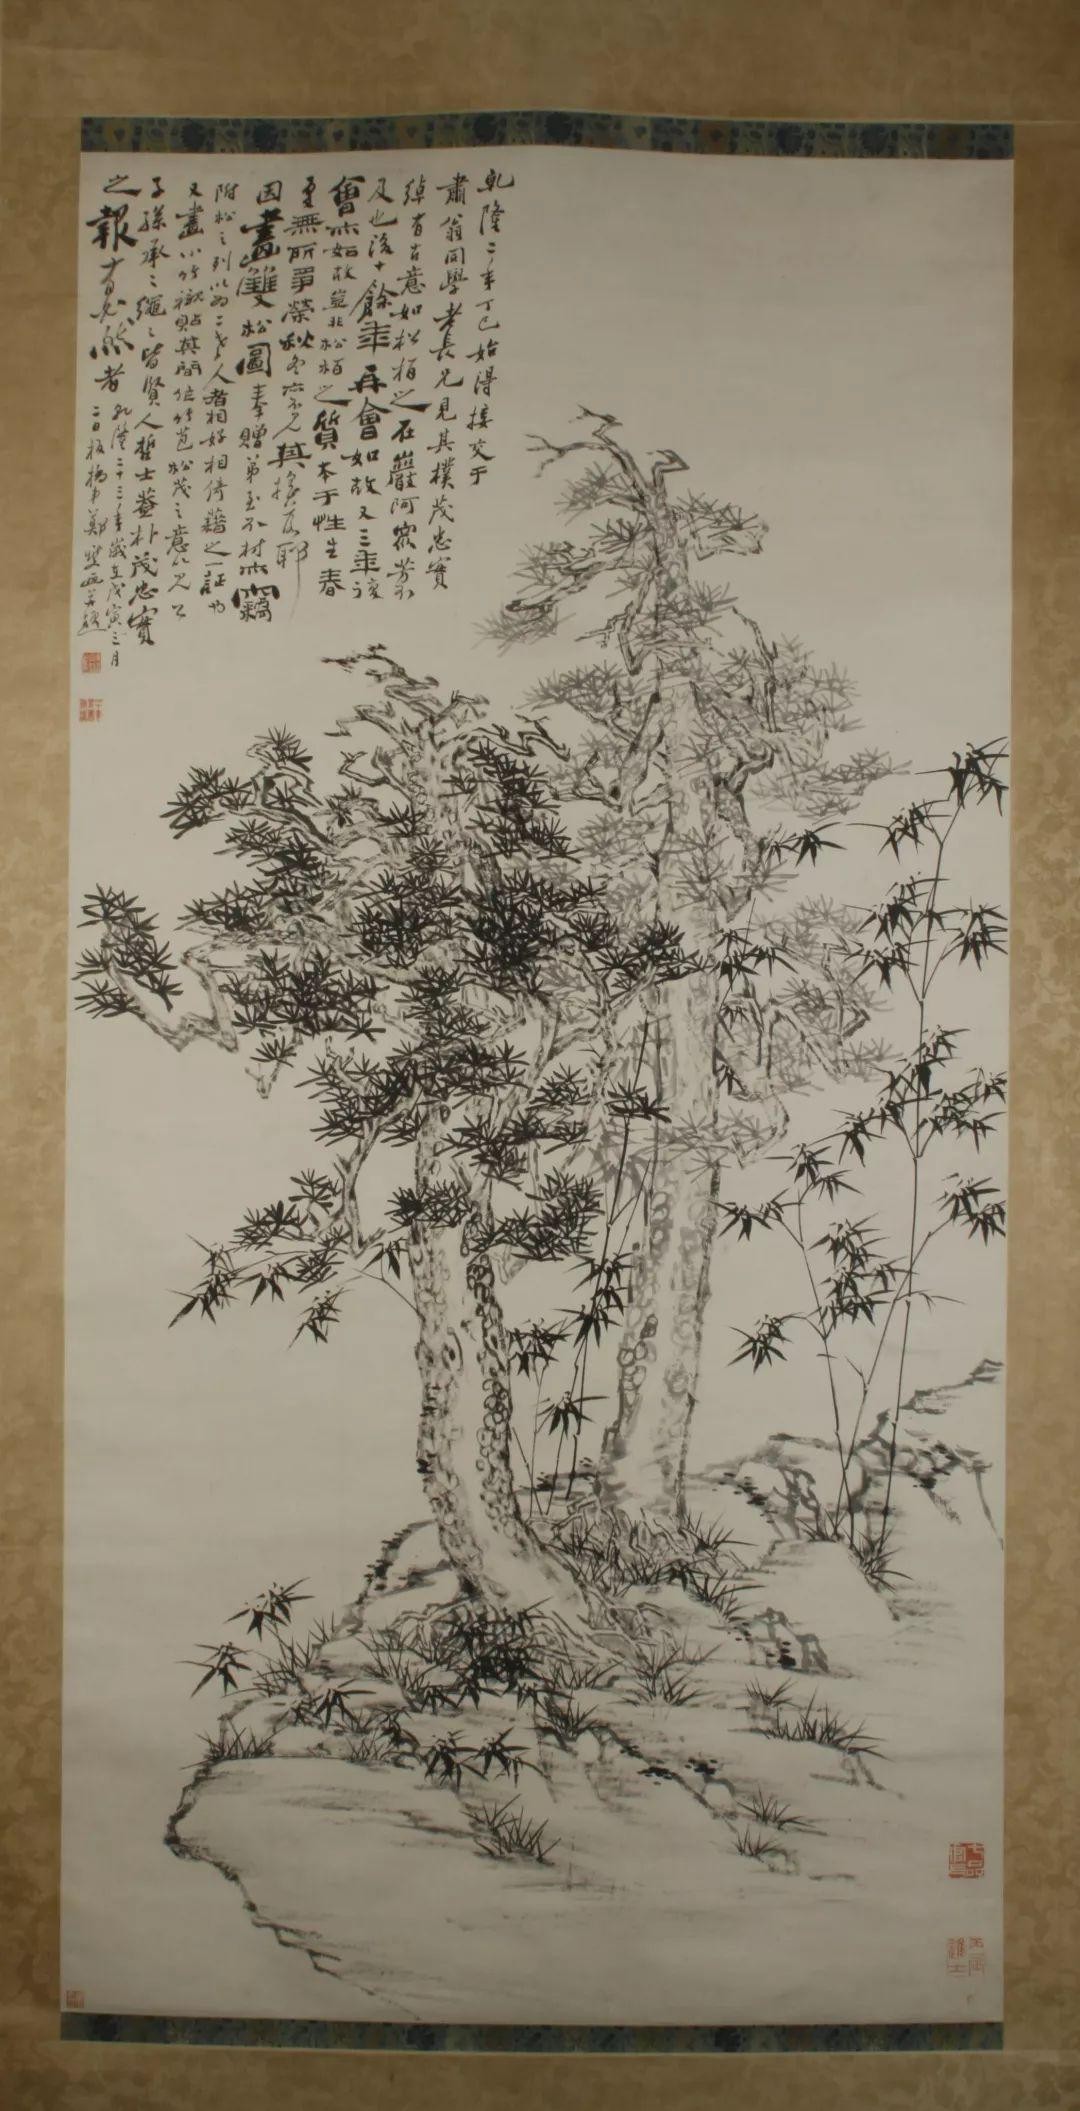 乹隆二年丁巳始得接交于
肅翁同學老長兄見其樸茂忠實
綽有古意如松栢之在巖阿眾芳不
及也後十餘年再會如故又三年復
會亦如故豈非松栢之質本于性生春
夏無所爭榮秋冬亦不見其摇落耶
因畫雙松圖奉贈弟至不材亦竊
附松之列以為二老人者相好相倚藉之一証也
又畫小竹襯貼其間作竹苞松茂之意以見公
子孫承〻繩〻皆賢人哲士蓋朴茂忠實
之報有必然者
乹隆二十三年歲在戊寅三月
二日板橋弟鄭燮画并題
七品官耳
丙辰進士